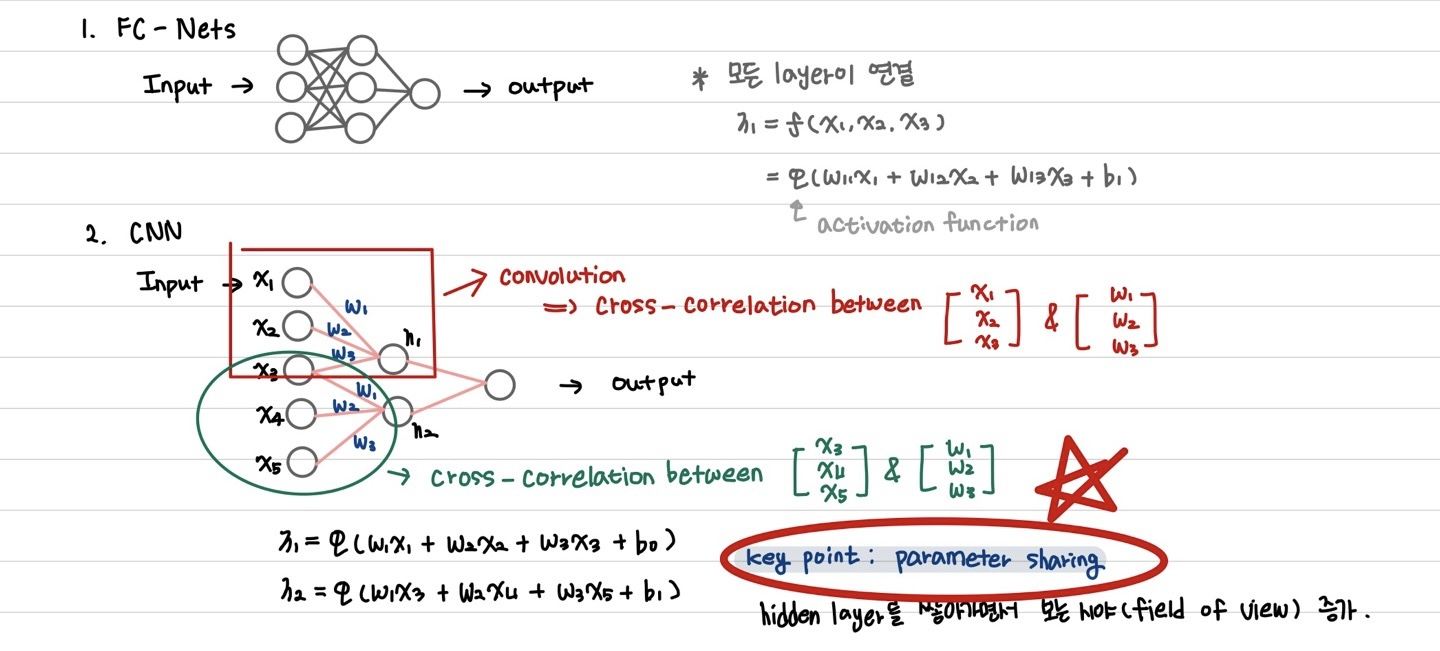 1. FC-Nets
Input → → output
* 모든 layer이 연결
h₁ = f(x₁, x₂, x₃)
= φ(w₁₁x₁ + w₁₂x₂ + w₁₃x₃ + b₁)
activation function
2. CNN
Input → x₁
x₂
x₃
x₄
x₅
w₁
w₂
w₃
h₁
w₁
w₂
w₃
h₂
→ output
→ convolution
=> cross-correlation between [x₁ x₂ x₃] & [w₁ w₂ w₃]
→ cross-correlation between [x₃ x₄ x₅] & [w₁ w₂ w₃]
h₁ = φ(w₁x₁ + w₂x₂ + w₃x₃ + b₀)
h₂ = φ(w₁x₃ + w₂x₄ + w₃x₅ + b₁)
key point : parameter sharing
hidden layer를 쌓아가면서 보는 시야(field of view) 증가.